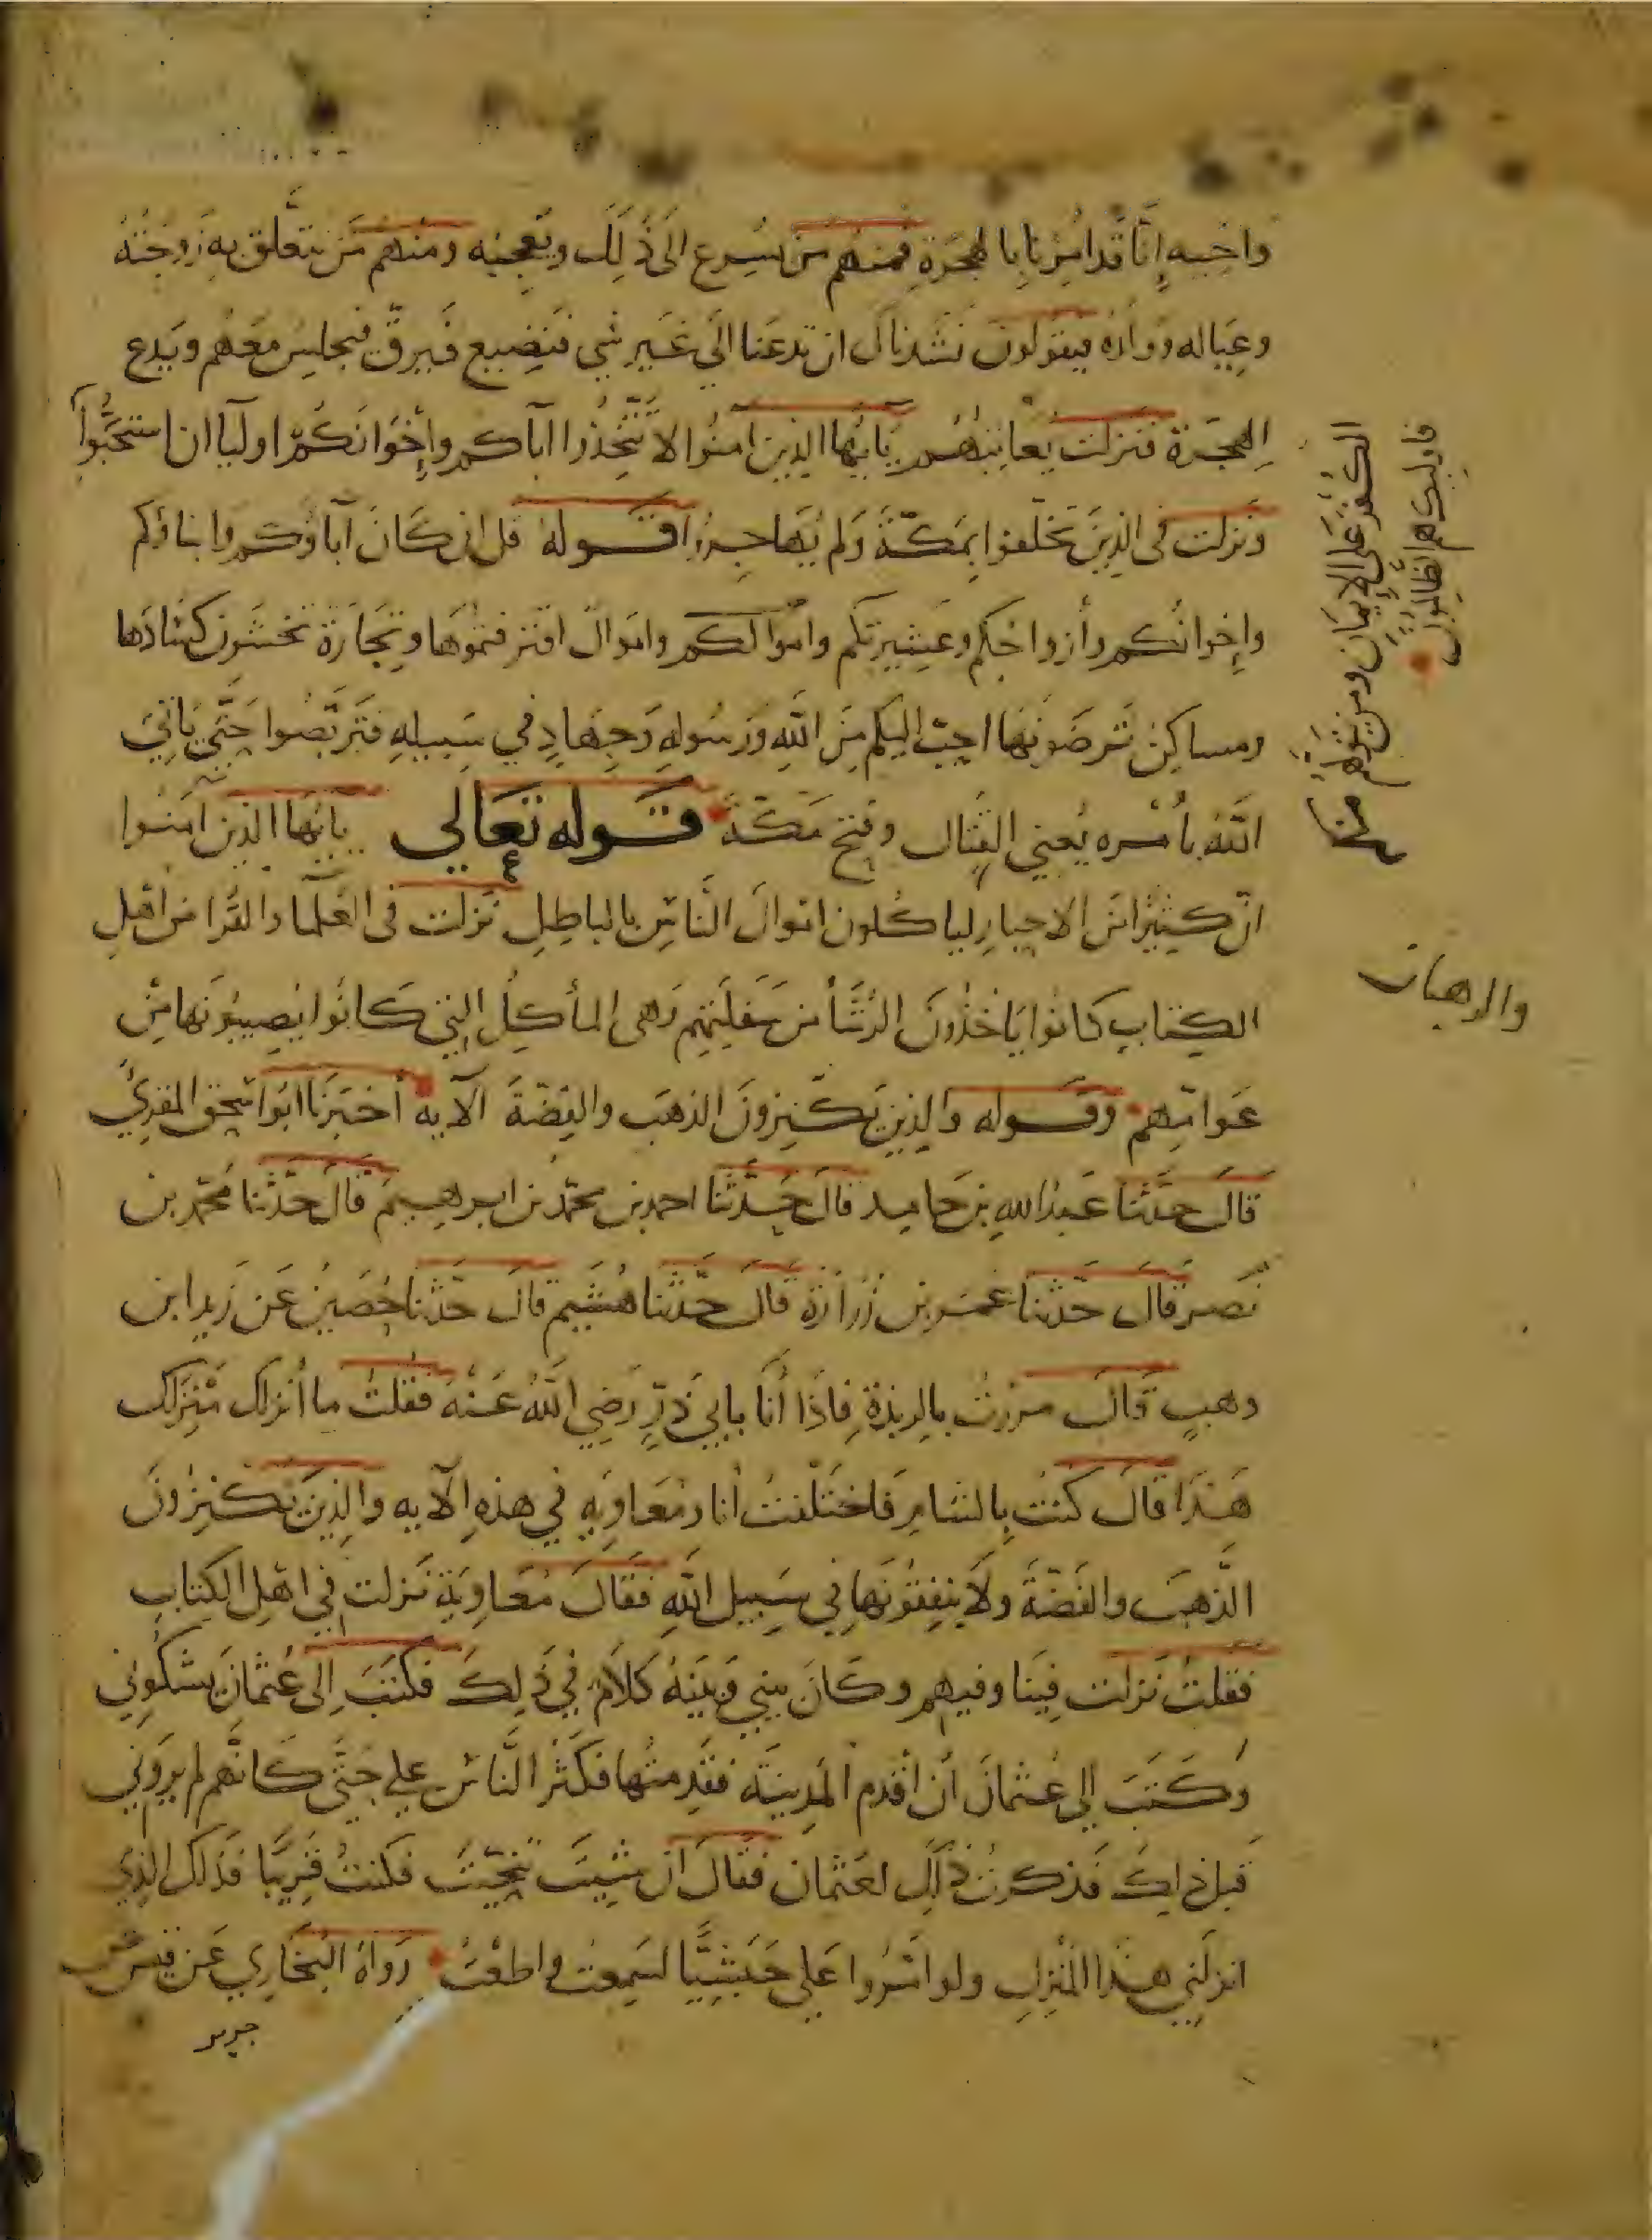 واخيه إنّا قد امرنا بالهجرة فمنهم من يسرع الى ذلك ويعجبه ومنهم من يتعلق به زوجته
وعياله وولده فيقولون نشدناك ان تدعنا الى غير شي فنضيع فيرق فيجلس معهم ويدع
الهجرة فنزلت يعاتبهم يا ايها الذين امنوا لا تتخذوا اباكم وإخوانكم اوليا ان استحبوا
ونزلت في الذين تخلفوا بمكة ولم يهاجروا قوله قل ان كان آباؤكم وابناؤكم
وإخوانكم وأزواجكم وعشيرتكم واموالكم واموال اقترفتموها وتجارة تخشون كسادها
ومساكن ترضونها احب اليكم من الله ورسوله وجهاد في سبيله فتربصوا حتى ياتي
الله بأمره يعني القتال وفتح مكة قوله تعالي يايها الذين امنوا
ان كثيرا من الاحبار لياكلون اموال الناس بالباطل نزلت في العلما والقرا من اهل
الكتاب كانوا ياخذون الرشا من سفلتهم وهي المأكل التي كانوا يصيبونها من
عوامهم وقوله والذين يكنزون الذهب والفضة الآيه أخبرنا ابو اسحق المقرئ
قال حدثنا عبد الله بن حامد قال حدثنا احمد بن محمد بن ابرهيم قال حدثنا محمد بن
نصر قال حدثنا عمرو بن زرارة قال حدثنا هشيم قال حدثنا حصين عن زيد ابن
وهب قال مررت بالربذة فاذا أنا بابي ذر رضي الله عنه فقلت ما أنزلك منزلك
هذا قال كنت بالشام فاختلفت أنا ومعاويه في هذه الآيه والذين يكنزون
الذهب والفضة ولا ينفقونها في سبيل الله فقال معاوية نزلت في اهل الكتاب
فقلت نزلت فينا وفيهم وكان بيني وبينه كلام في ذلك فكتب إلى عثمان يشكوني
وكتب إلي عثمان أن أقدم المدينة فقدمتها فكثر الناس علي حتى كانهم لم يروني
قبل ذلك فذكرت ذلك لعثمان فقال ان شيت تنحيت فكنت قريبا فذلك الذي
انزلني هذا المنزل ولو امروا علي حبشيا لسمعت واطعت رواه البخاري عن قيس عن
جرير
الكفر على الإيمان ومن يتولهم منكم
فاوليك هم الظالمون
والرهبان